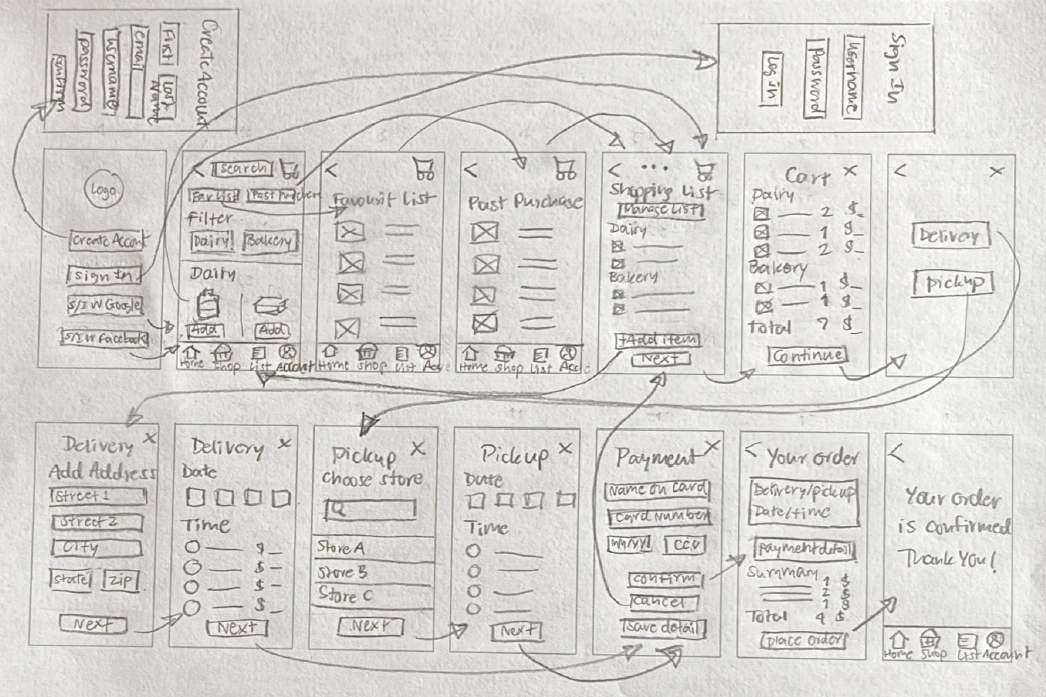 Create Account
First Last Name
email
username
password
confirm
Sign In
username
password
Log In
Logo
Create Accont
Sign In
S/I W Google
S/I W Facebook
<
Search
Fav List
Filter
Dairy Bakery
Dairy
Add Add
Home Shop List Account
<
Favourit List
Home Shop List
<
Past Purchase
Home Shop List
< ...
Shopping List
Manage List
Dairy
Bakery
+Add item
Next
Cart X
Dairy
2 $_
1 $_
2 $_
Bakery
1 $_
1 $_
Total 7 $_
Continue
< X
Delivery
pickup
Delivery X
Add Address
Street 1
Street 2
City
State Zip
Next
Delivery X
Date
Time
$_
$_
$_
$_
Next
Pickup X
Choose store
Store A
Store B
Store C
Next
Pickup X
Date
Time
Next
Payment X
Name on Card
Card Number
CCV
confirm
cancel
save detail
< Your order
Delivery/pickup
Date/time
Payment detail
Summary
1 $
2 $
1 $
Total 4 $
place order
<
Your order
is confirmed
Thank You!
Home Shop List Account